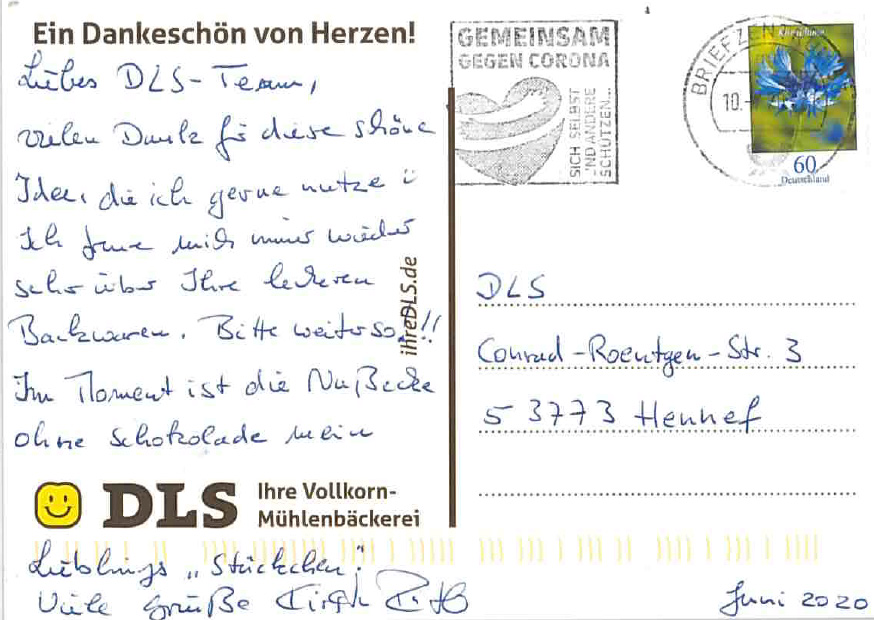 Ein Dankeschön von Herzen!
Liebes DLS-Team,
vielen Dank für diese schöne
Idee, die ich gerne nutze
Ich freue mich immer wieder
sehr über Ihre leckeren
Backwaren. Bitte weiter so!!!
Im Moment ist die Nußecke
ohne Schokolade mein
ihreDLS.de
DLS Ihre Vollkorn-
Mühlenbäckerei
Lieblings „Stückchen".
Viele Grüße
GEMEINSAM
GEGEN CORONA
SICH SELBST
UND ANDERE
SCHÜTZEN...
BRIEFZEN
10.
60
Deutschland
DLS
Conrad-Roentgen-Str. 3
53773 Hennef
Juni 2020